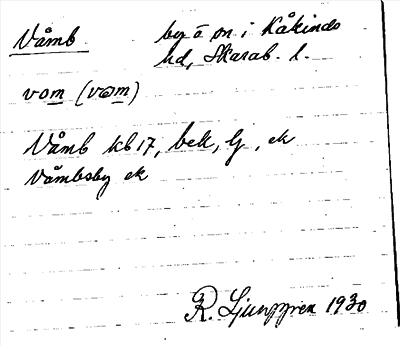 Våmb by å sn i Kåkinds
hd, Skarab. l.
vom (vɷm)
Våmb kb 17, bek, G, ek
Våmbsby ek
R. Ljunggren 1930